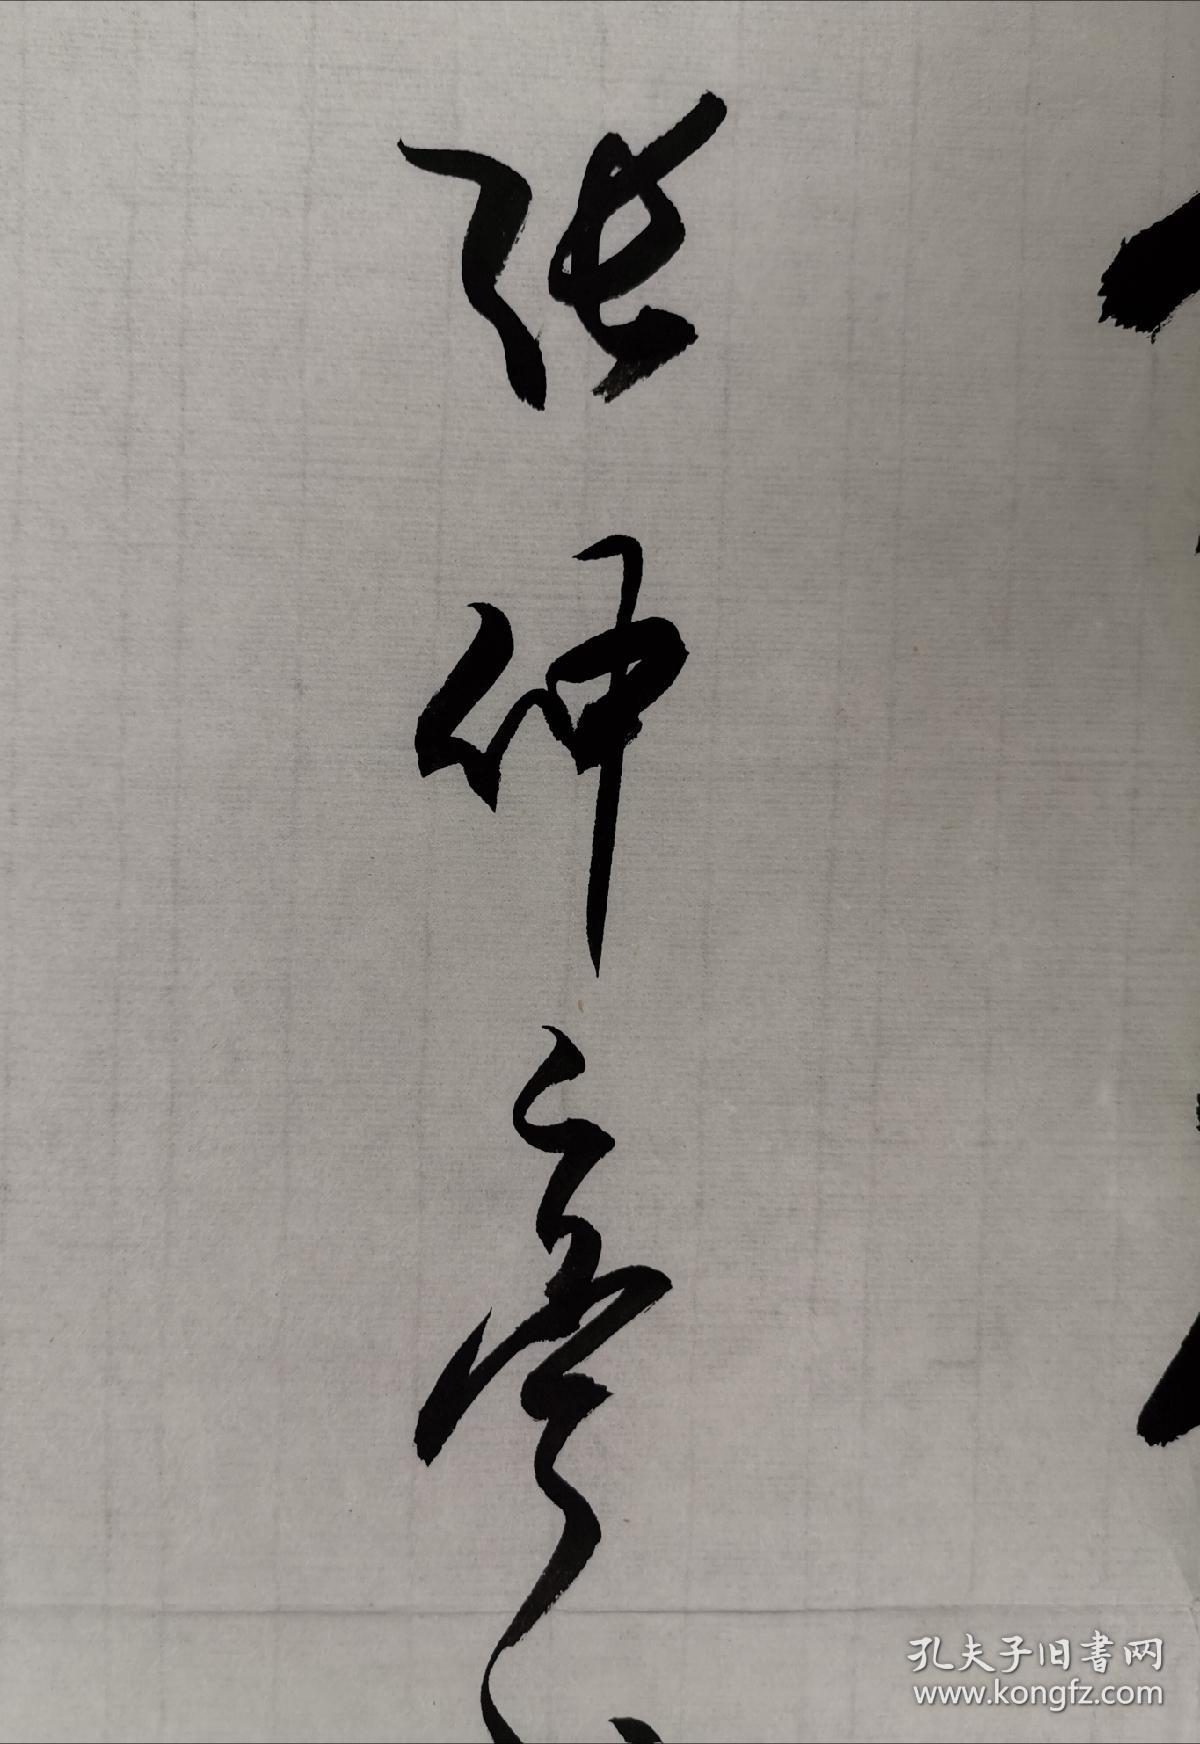 张仲亭
孔夫子旧书网
www.kongfz.com